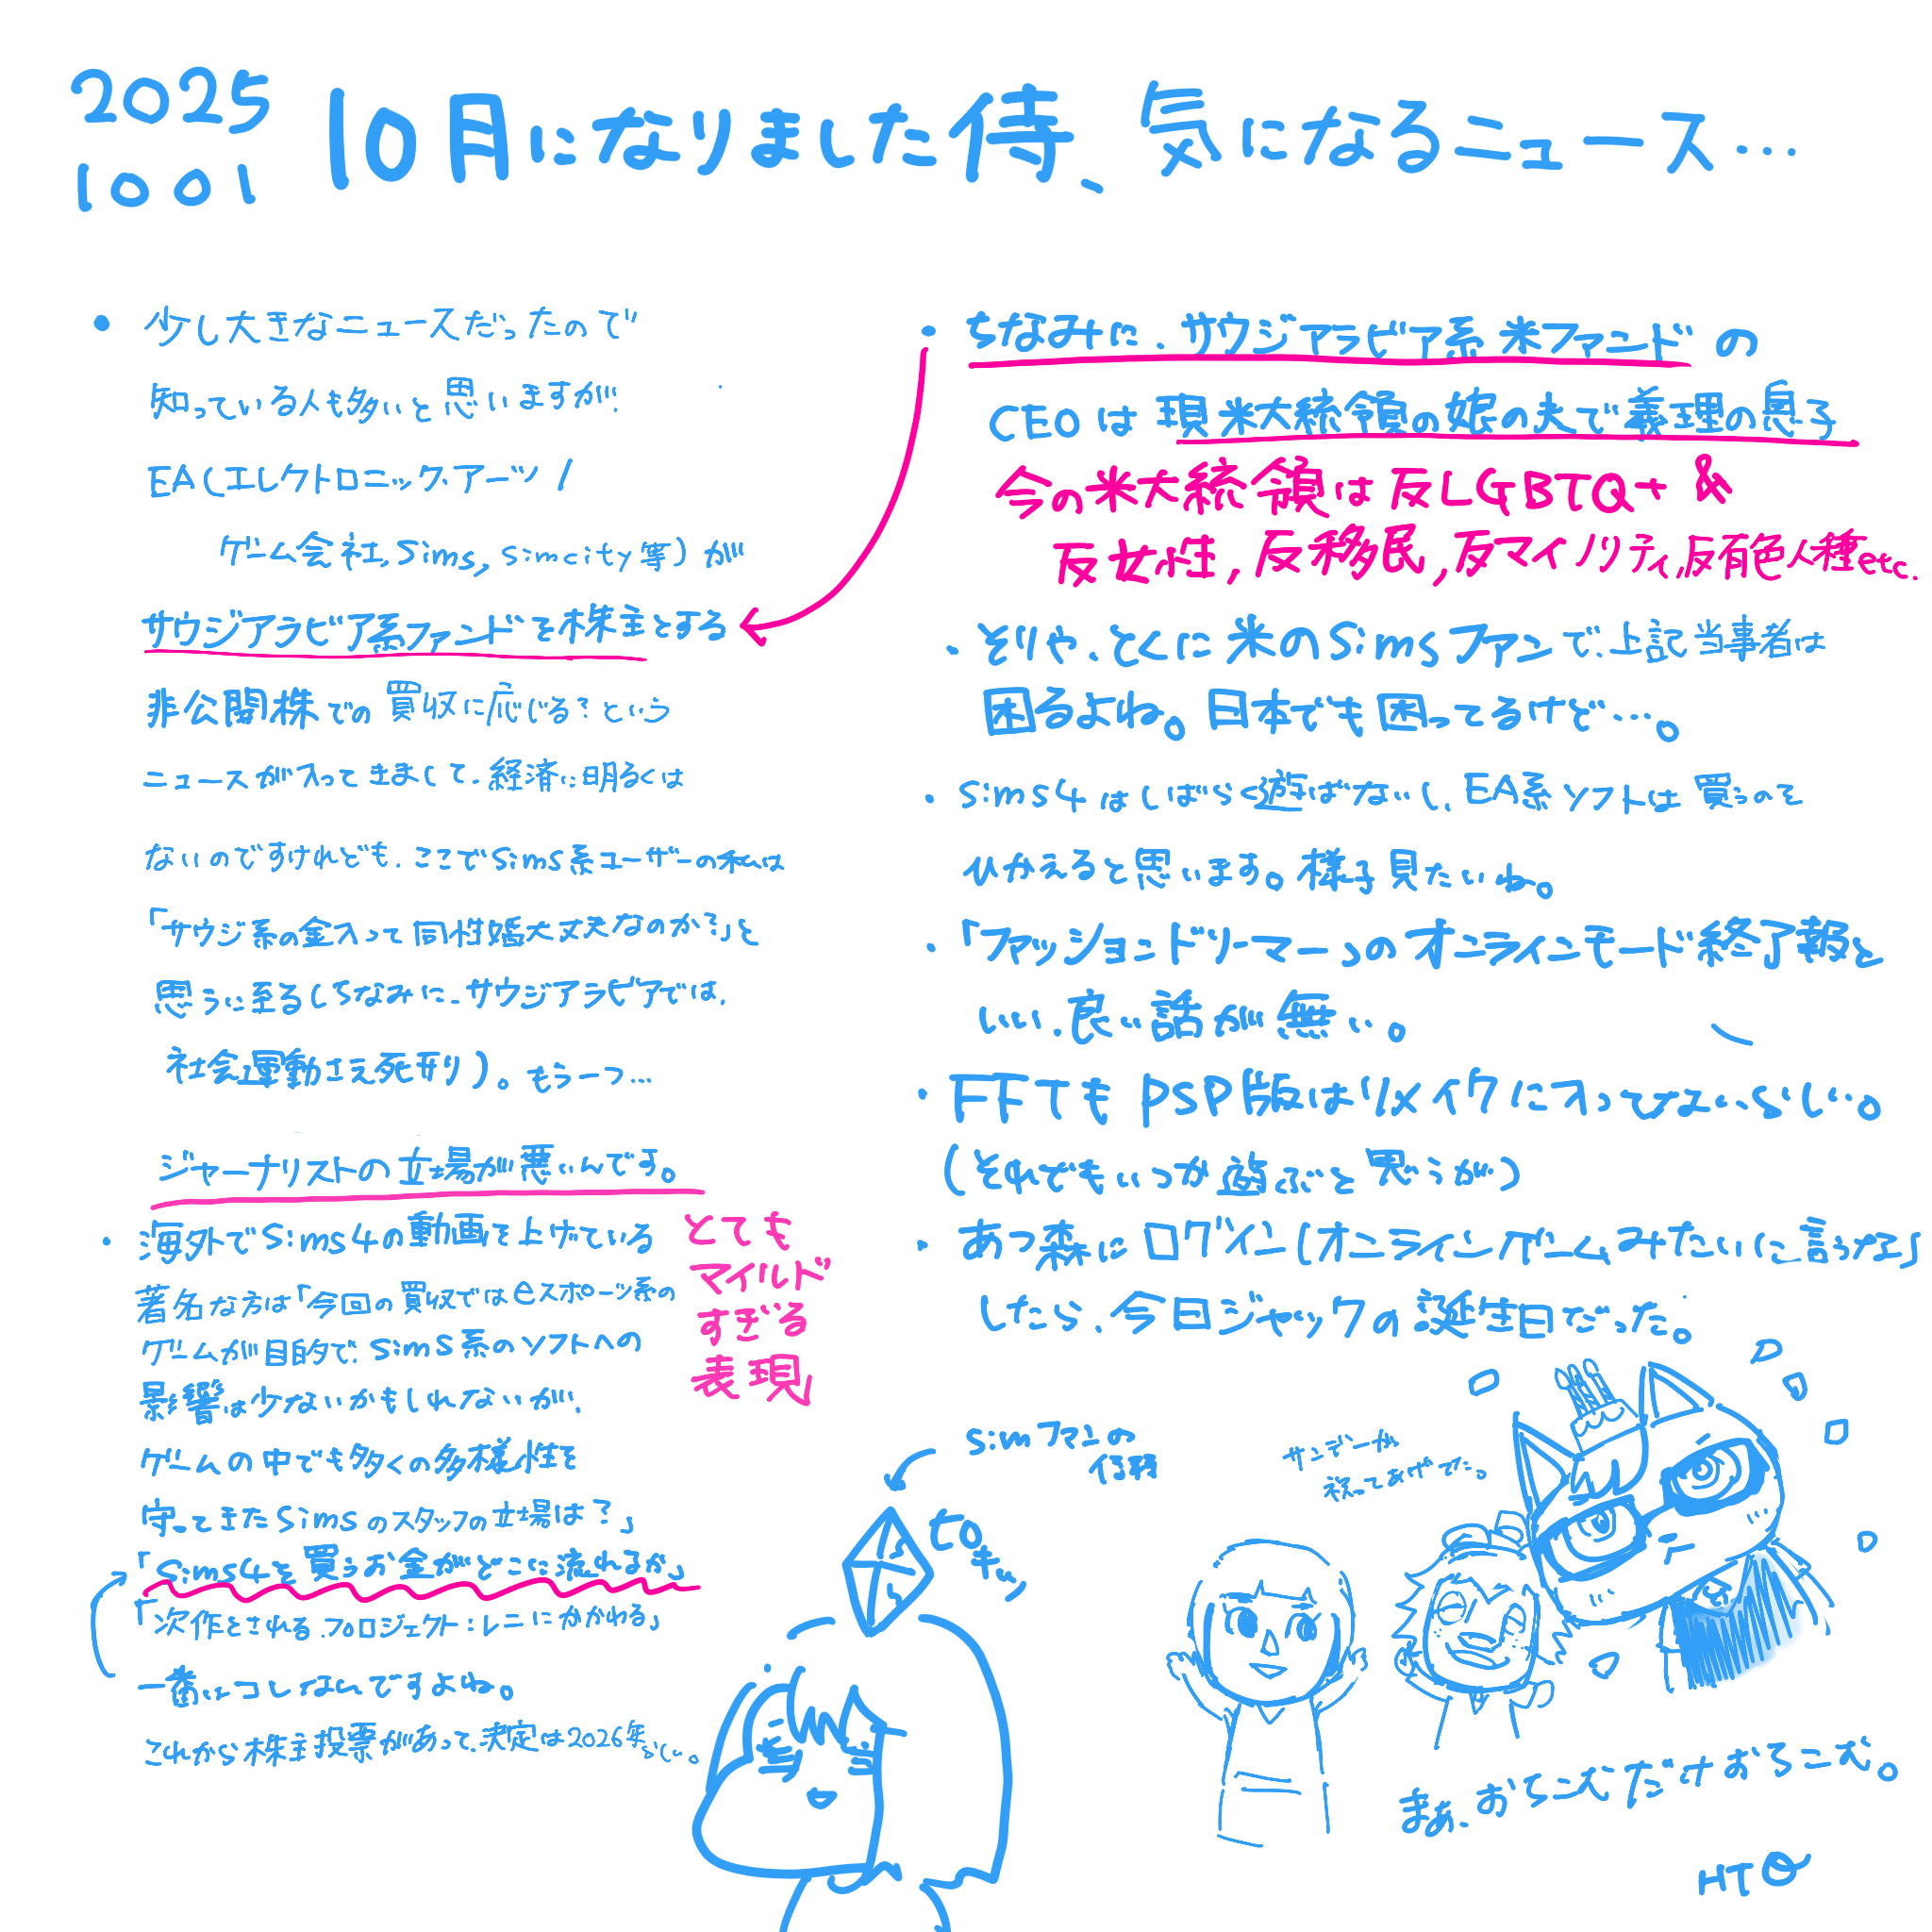 2025
1001
10月になりました侍、気になるニュース…
・少し大きなニュースだったので
知っている人も多いと思いますが、
EA(エレクトロニック・アーツ/
ゲーム会社,Sims,Simcity等)が
サウジアラビア系ファンドを株主とする
非公開株での買収に応じる?という
ニュースが入ってきまして、経済に明るくは
ないのですけれども、ここでSims系ユーザーの私は
「サウジ系の金入って同性婚大丈夫なのか?」と
思うに至る(ちなみに、サウジアラビアでは、
社会運動さえ死刑り)。もう一つ…
ジャーナリストの立場が悪いんです。
・海外でSims4の動画を上げている
著名な方は「今回の買収ではeスポーツ系の
ゲームが目的で、Sims系のソフトへの
影響は少ないかもしれないが、
ゲームの中でも多くの多様性を
守ってきたSimsのスタッフの立場は?」
「Sims4を買うお金がどこに流れるか」
「次作とされる、プロジェクト:レニにかかわる」
一番はコレなんですよね。
これから株主投票があって、決定は2026年らしい。
とても
マイルド
すぎる
表現
・ちなみに、サウジアラビア系米ファンドの
CEOは現米大統領の娘の夫で義理の息子
今の米大統領は反LGBTQ+&
反女性,反移民,反マイノリティ,反有色人種etc.
・そりゃ、とくに米のSimsファンで、上記当事者は
困るよね。日本でも困ってるけど…。
・Sims4はしばらく遊ばないし、EA系ソフトは買うのを
ひかえると思います。様子見たいね。
・「ファッションドリーマー」のオンラインモード終了報と
いい、良い話が無い。
・FFTもPSP版はリメイクに入ってないらしい。
(それでもいつか遊ぶと思うが)
・あつ森にログイン(オンラインゲームみたいに言うな)
したら、今日ジャックの誕生日だった。
simファンの
侍
サンデーが
祝ってあげてた。
まあ、おちこむだけおちこむ。
HTQ